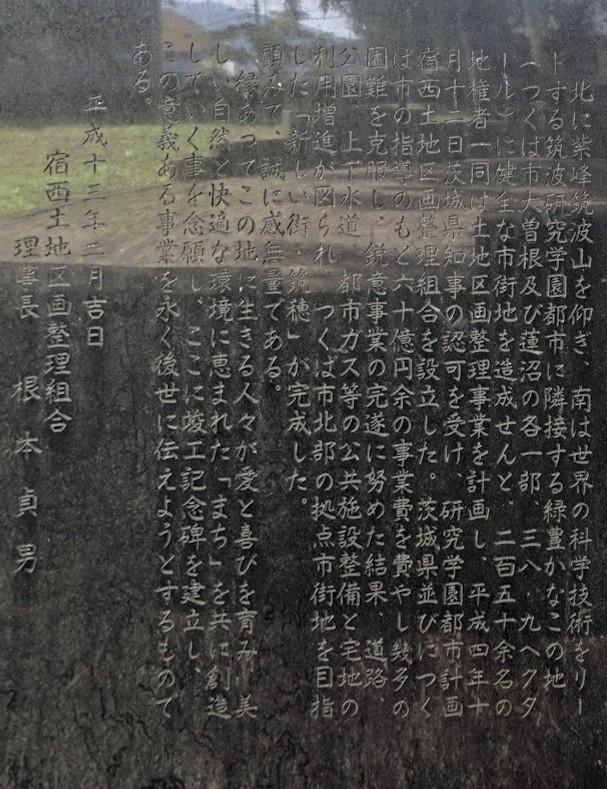 北に紫峰筑波山を仰ぎ、南は世界の科学技術をリー
ドする筑波研究学園都市に隣接する緑豊かなこの地
(つくば市大曽根及び蓮沼の各一部、三八・九ヘクタ
ール)に健全な市街地を造成せんと、二百五十余名の
地権者一同は土地区画整理事業を計画し、平成四年十
月十二日茨城県知事の認可を受け、研究学園都市計画
宿西土地区画整理組合を設立した。茨城県並びにつく
ば市の指導のもと六十億円余の事業費を費やし幾多の
困難を克服し、鋭意事業の完遂に努めた結果、道路、
公園、上下水道、都市ガス等の公共施設整備と宅地の
利用増進が図られ、つくば市北部の拠点市街地を目指
した「新しい街・筑穂」が完成した。
顧みて、誠に感無量である。
縁あってこの地に生きる人々が愛と喜びを育み、美
しい自然と快適な環境に恵まれた「まち」を共に創造
していく事を念願し、ここに竣工記念碑を建立し、
この意義ある事業を永く後世に伝えようとするもので
ある。
平成十三年二月吉日
宿西土地区画整理組合
理事長 根本貞男